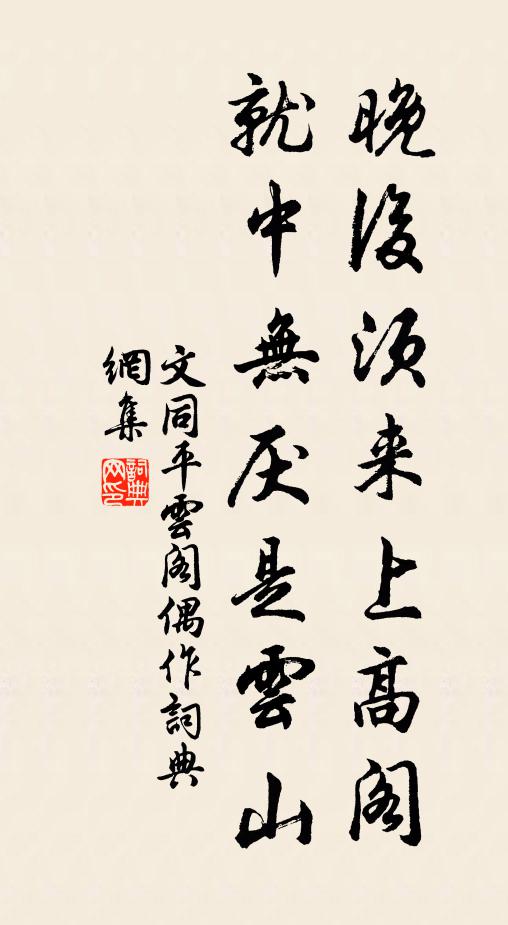 晚後須来上高阁
就中無厌是雲山
文同平雲阁偶作詞典
網集
詞典网印